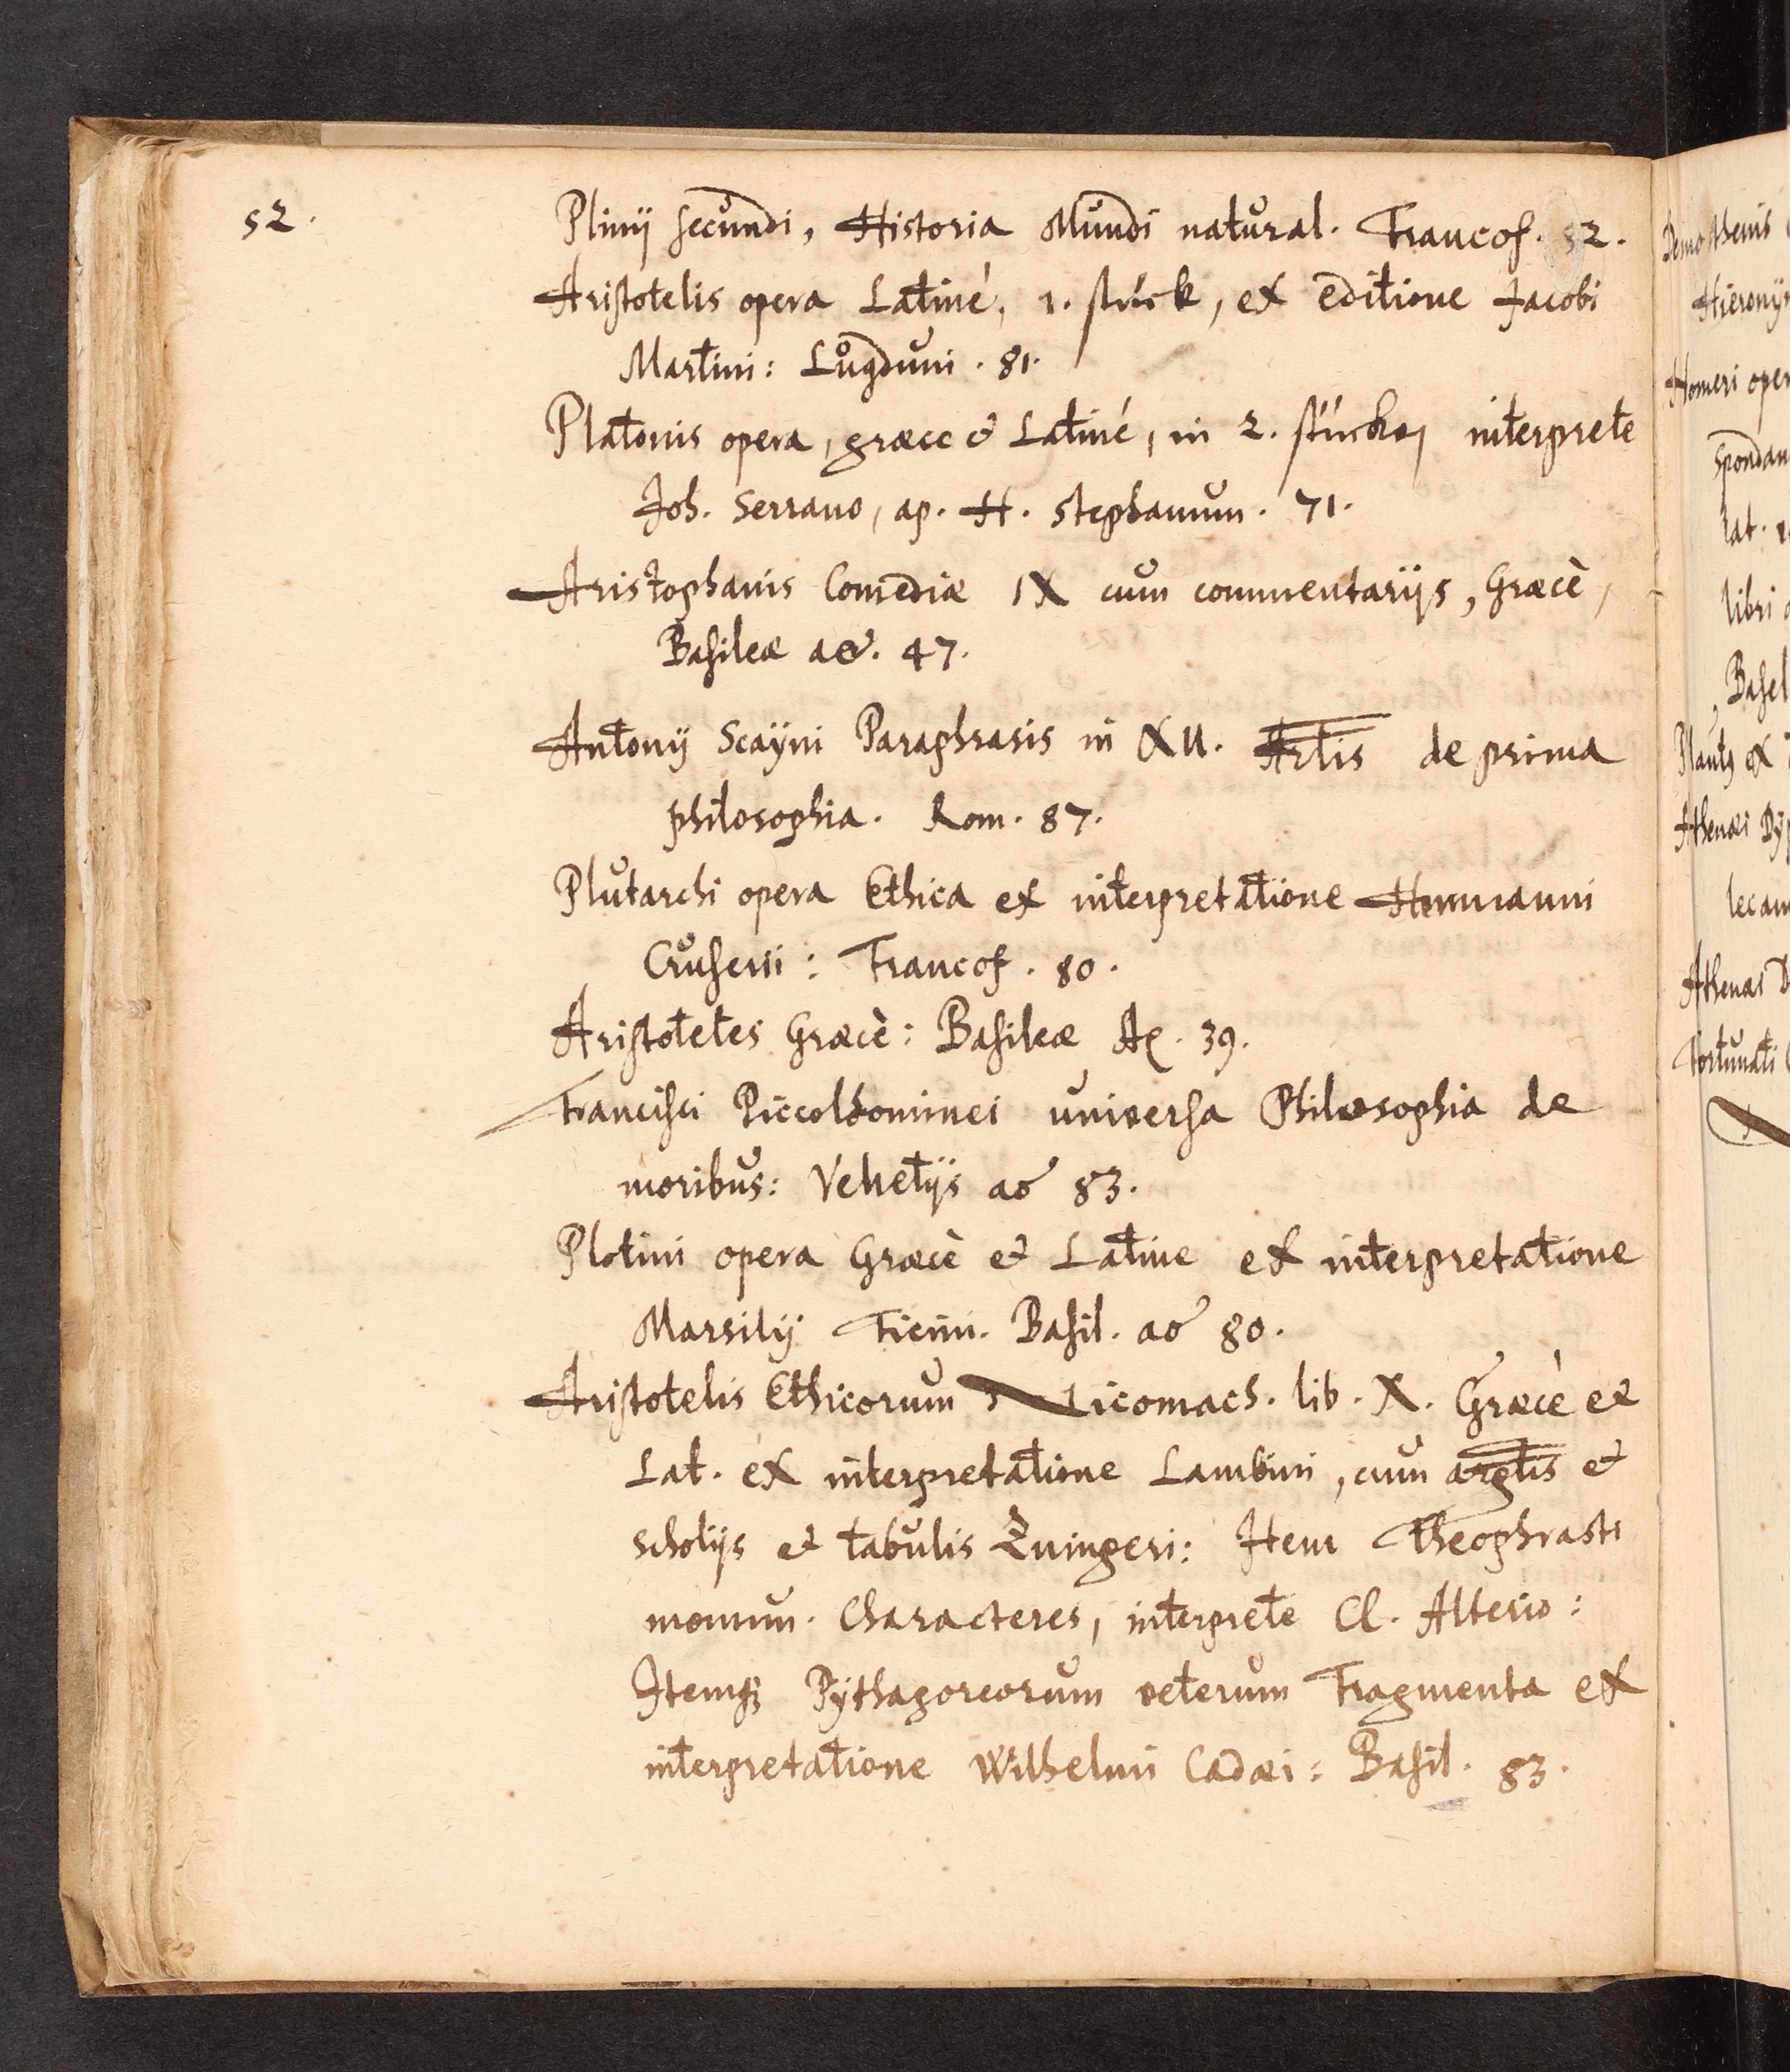 52.
Plinij secundi, Historia Mundi natural. Francof. 82.
Aristotelis opera Latiné, 1. stuck, ex editione Jacobi
Martini: Lugduni. 81.
Platonis opera, græce & Latiné, in 2. stücken interprete
Joh. Serrano, ap. H. Stephanum. 71.
Aristophanis Comediæ IX cum commentarijs, Græcè,
Basileæ ao. 47.
Antonij Scayni Paraphrasis in XII. Artlis de prima
philosophia. Rom. 87.
Plutarchi opera Ethica ex interpretatione Hermanni
Cruserii: Francof. 80.
Aristoteles Græcè: Basileæ Aº. 39.
Francisci Piccolhominei universa Philosophia de
moribus: Venetijs ao 83.
Plotini opera Græcè et Latine ex interpretatione
Marsilij Ficini. Basil. ao 80.
Aristotelis Ethicorum Nicomach. lib. X. Græcè et
Lat. ex interpretatione Lambini, cum argtis et
scholijs et tabulis Zuingeri: Item Theophrasti
momum. Characteres, interprete Cl. Alterio:
Itemq; Pythagoreorum veterum Fragmenta ex
interpretatione Wilhelmi Cadæi: Basil. 83.
Demosthenis
Hieronym
Homeri oper
Spondan
lat.
libri
Basel
Plauty ex
Athenæi Dyp
lecam
Athenæi D
Fortunati